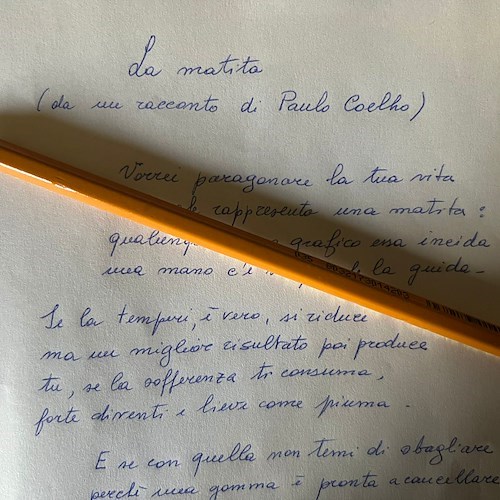 La matita
(da un racconto di Paulo Coelho)
Vorrei paragonare la tua vita
rappresenta una matita:
grafico essa incida
una mano c'è la guida-
Se la temperi, è vero, si riduce
ma un miglior risultato poi produce
tu, se la sofferenza ti consuma,
forte diventi e lieve come piuma.
E se con quella non temi di sbagliare
perché una gomma è pronta a cancellare